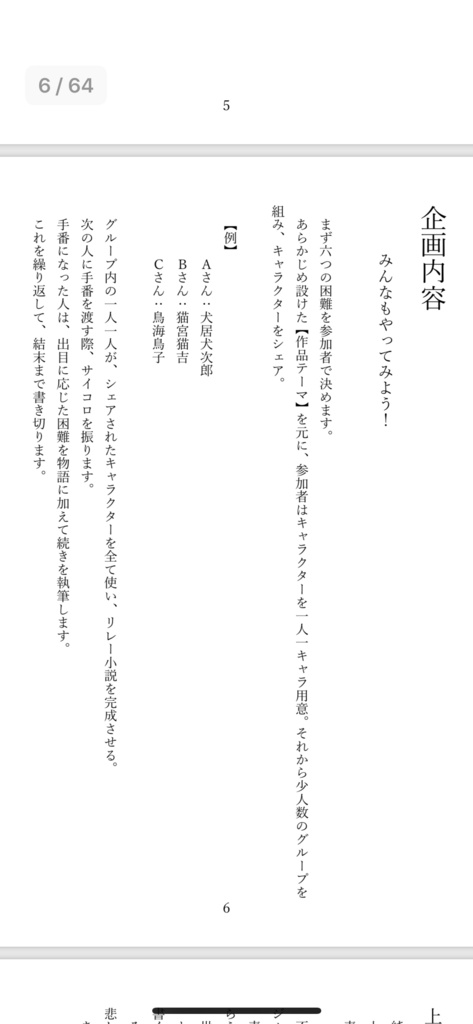 6 / 64
5
企画内容
みんなもやってみよう！
まず六つの困難を参加者で決めます。
あらかじめ設けた【作品テーマ】を元に、参加者はキャラクターを一人一キャラ用意。それから少人数のグループを
組み、キャラクターをシェア。
【例】
Aさん：犬居犬次郎
Bさん：猫宮猫吉
Cさん：鳥海鳥子
グループ内の一人一人が、シェアされたキャラクターを全て使い、リレー小説を完成させる。
次の人に手番を渡す際、サイコロを振ります。
手番になった人は、出目に応じた困難を物語に加えて続きを執筆します。
これを繰り返して、結末まで書き切ります。
6